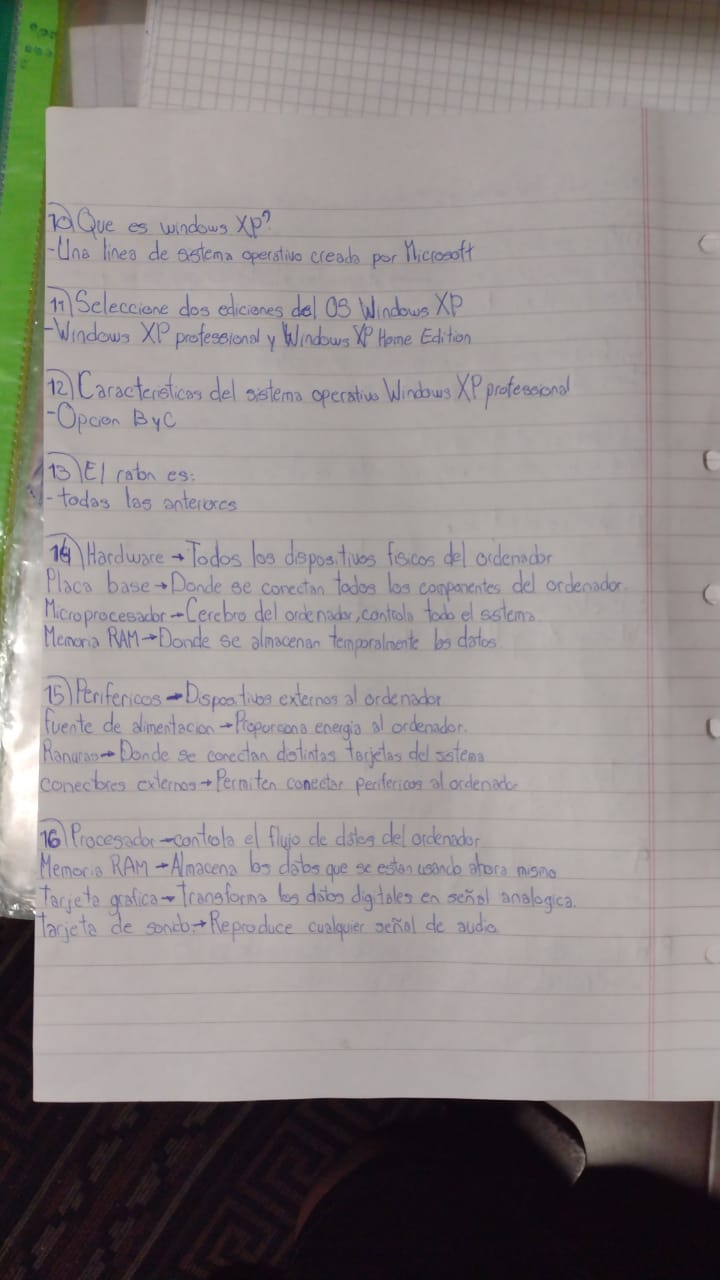 10) Que es windows XP?
-Una linea de sistema operativo creada por Microsoft
11) Seleccione dos ediciones del OS Windows XP
-Windows XP professional y Windows XP Home Edition
12) Caracteristicas del sistema operativo Windows XP professional
-Opcion B y C
13) El raton es:
-todas las anteriores
14) Hardware → Todos los dispositivos fisicos del ordenador
Placa base → Donde se conectan todos los componentes del ordenador.
Microprocesador → Cerebro del ordenador, controla todo el sistema
Memoria RAM → Donde se almacenan temporalmente los datos
15) Perifericos → Dispositivos externos al ordenador
fuente de alimentacion → Proporciona energia al ordenador.
Ranuras → Donde se conectan distintas tarjetas del sistema
conectores externos → Permiten conectar perifericos al ordenador
16) Procesador → controla el flujo de datos del ordenador
Memoria RAM → Almacena los datos que se estan usando ahora mismo
Tarjeta grafica → Transforma los datos digitales en señal analogica.
Tarjeta de sonido → Reproduce cualquier señal de audio